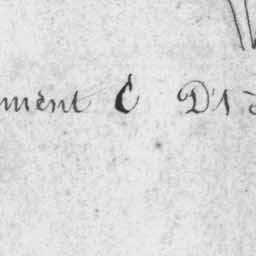 ment C D'1